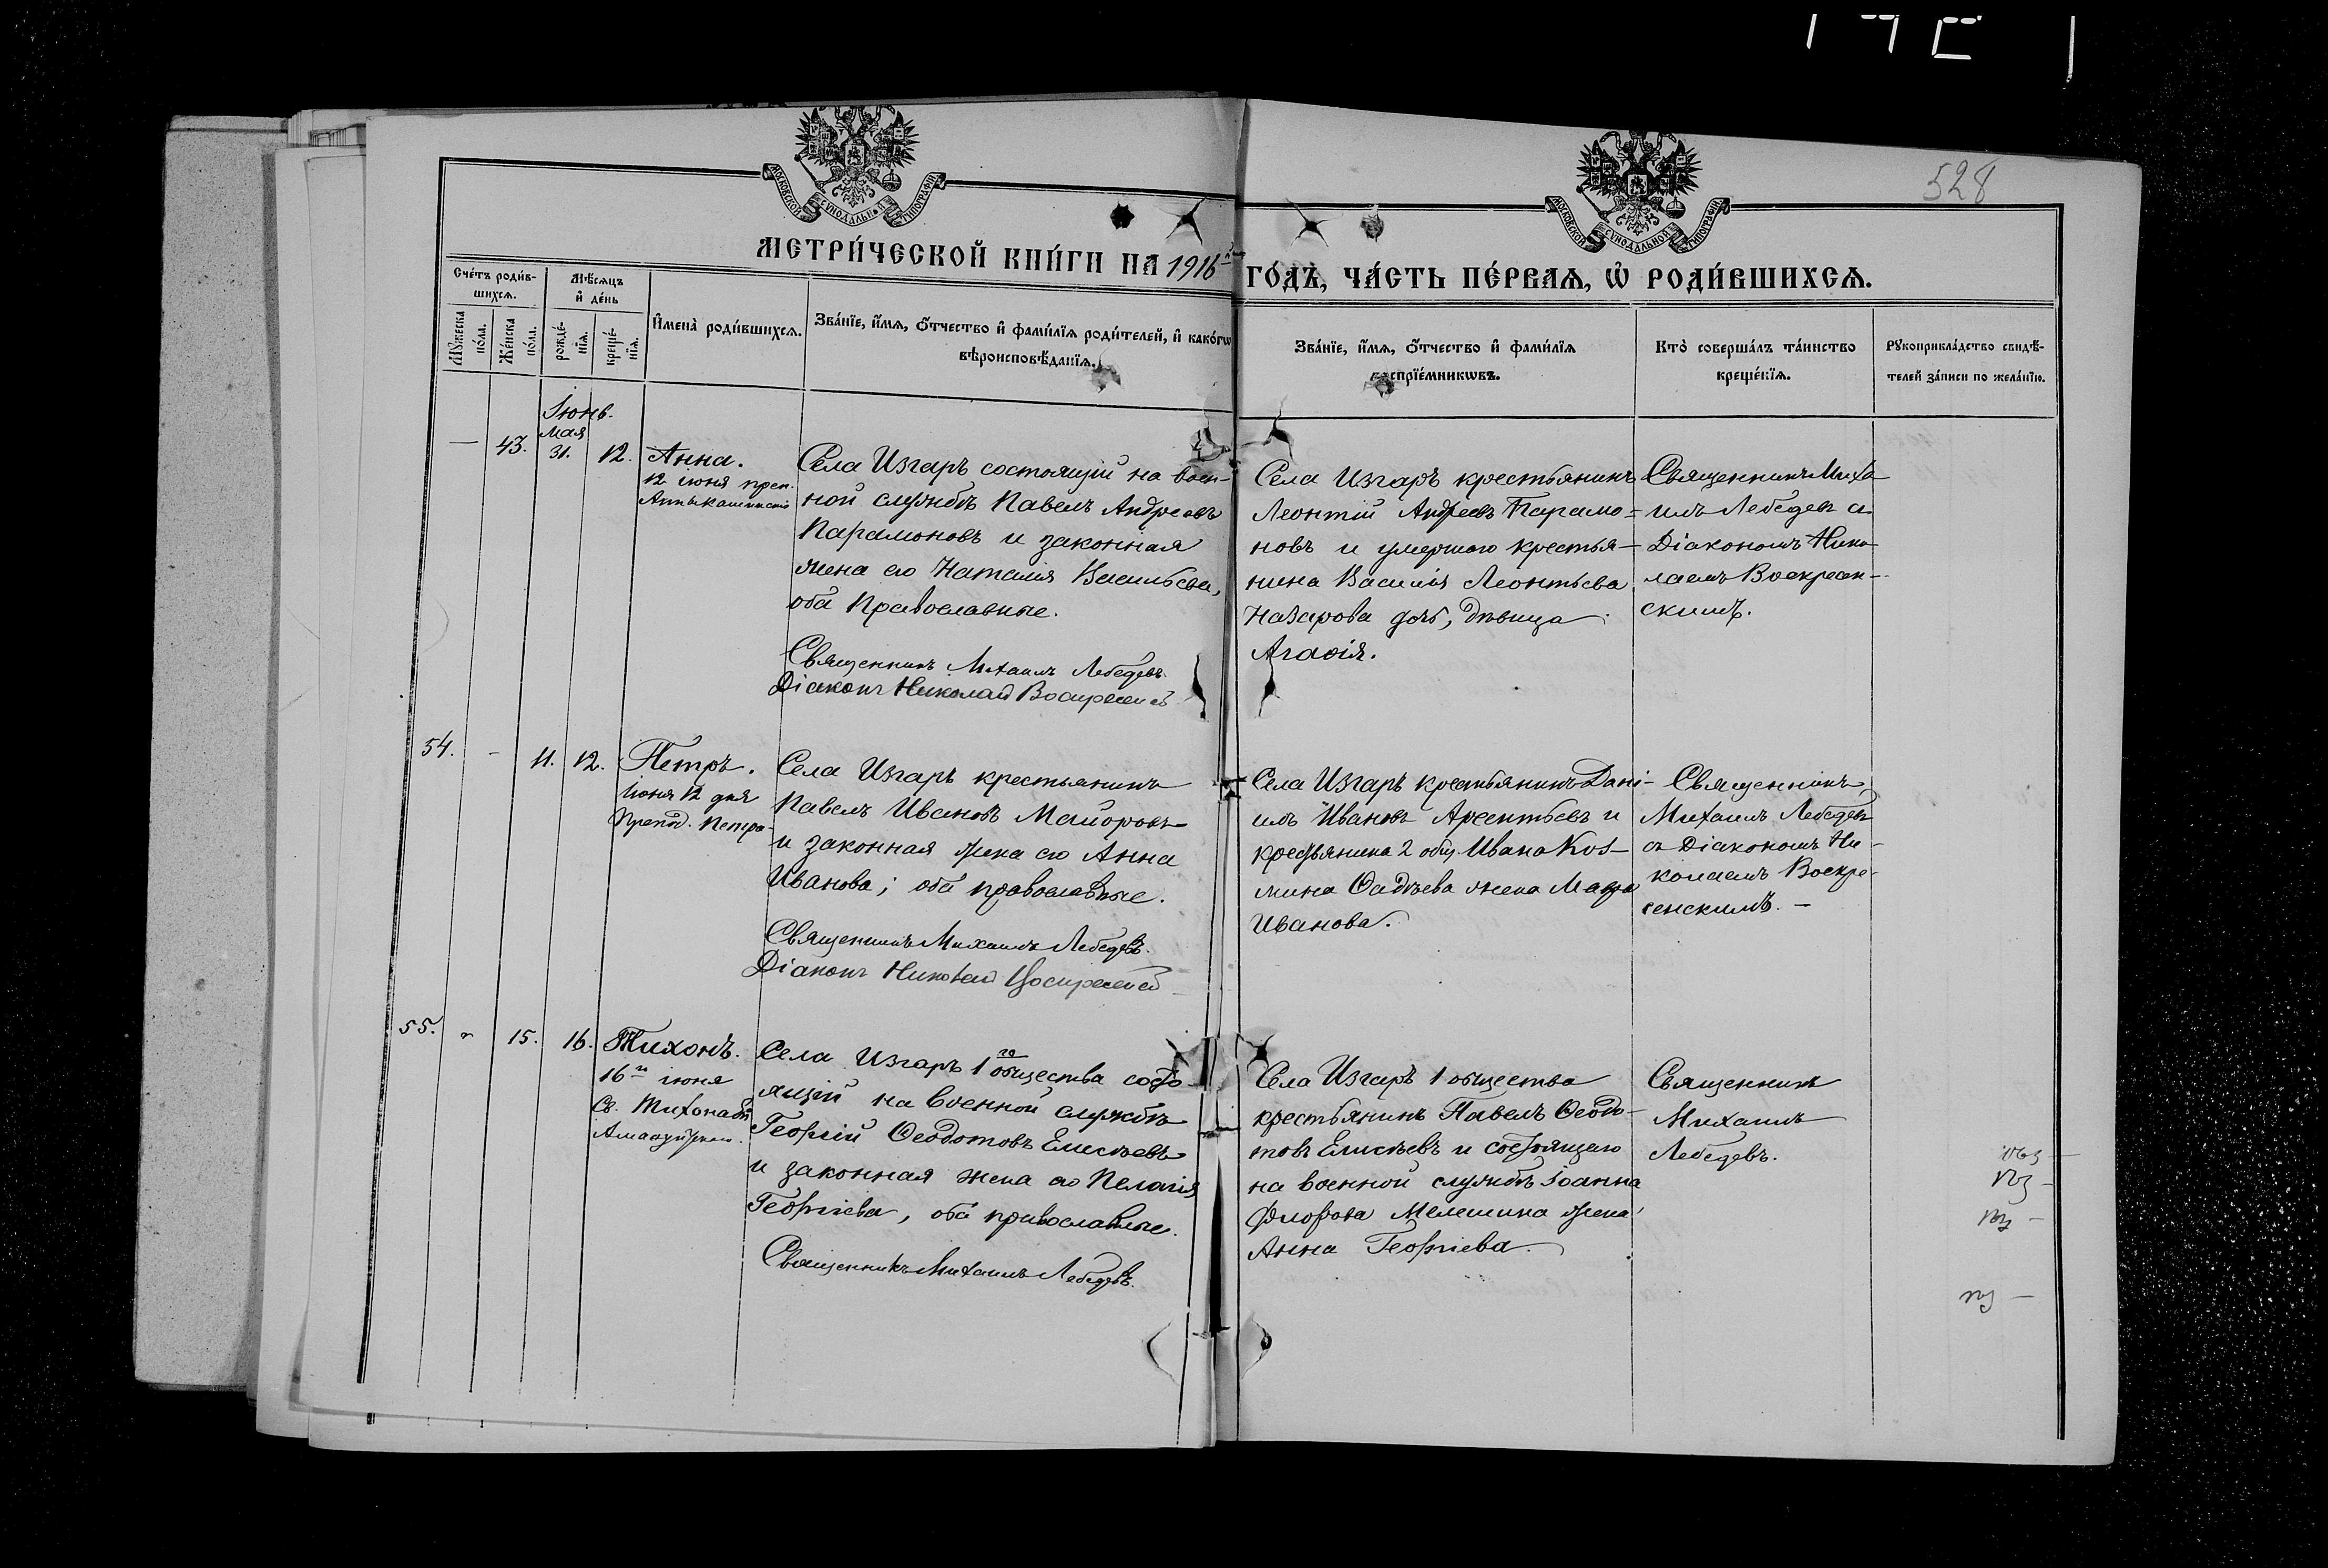 528
МОСКОВСКОЙ СѴНОДАЛЬНОЙ ТИПОГРАФІИ
МОСКОВСКОЙ СѴНОДАЛЬНОЙ ТИПОГРАФІИ
МЕТРИ́ЧЕСКОЙ КНИ́ГИ НА 1916й ГО́ДЪ, ЧА́СТЬ ПЕ́РВАѦ, Ѽ РОДИ́ВШИХСѦ.
Сче́тъ роди́в-
шихсѧ.
Мꙋ́жеска
по́ла.
Же́нска
по́ла.
Мѣ́сѧцъ
и҆ де́нь
рожде́-
нїѧ.
креще́-
нїѧ.
И҆мена̀ роди́вшихсѧ.
Зва́нїе, и҆́мѧ, ѻ҆́тчество и҆ фами́лїѧ роди́телей, и҆ како́гѡ
вѣроисповѣ́данїѧ.
Зва́нїе, и҆́мѧ, ѻ҆́тчество и҆ фами́лїѧ
воспрїе́мникѡвъ.
Кто̀ соверша́лъ та́инство
креще́нїѧ.
Рꙋкоприкла́дство свидѣ́-
телей за́писи по жела́нїю.
Іюнь.
Мая
— 43. 31. 12.
Анна.
12 іюня преп.
Анны Кашинскія
Села Изгаръ состоящій на воен-
ной службѣ Павелъ Андреевъ
Парамоновъ и законная
жена его Наталія Васильева,
оба Православные.
Священникъ Михаилъ Лебедевъ.
Діаконъ Николай Воскресенскій
Села Изгаръ крестьянинъ
Леонтій Андреевъ Парамо-
новъ и умершаго крестья-
нина Василія Леонтьева
Назарова дочь, дѣвица
Агаѳія.
Священникъ Миха
илъ Лебедевъ съ
Діакономъ Нико-
лаемъ Воскресен-
скимъ.
54. - 11. 12.
Петръ.
Іюня 12 дня
Препод. Петра
Села Изгаръ крестьянинъ
Павелъ Ивановъ Майоровъ
и законная жена его Анна
Иванова; оба православные.
Священникъ Михаилъ Лебедевъ.
Діаконъ Николай Воскресенскій
Села Изгаръ крестьянинъ Дані-
илъ Ивановъ Арсентьевъ и
крестьянина 2 общ. Ивана Коз-
мина Ѳадѣева жена
Иванова.
Священникъ
Михаилъ Лебедевъ
съ Діакономъ Ни-
колаемъ Воскре-
сенскимъ. -
55. - 15. 16.
Тихонъ.
16го іюня
Св. Тихона Еп.
Амаѳунтск.
Села Изгаръ 1го общества состо-
ящій на военной службѣ
Георгій Ѳеодотовъ Елисѣевъ
и законная жена его Пелагія
Георгіева, оба православные.
Священникъ Михаилъ Лебедевъ.
Села Изгаръ 1 общества
крестьянинъ Павелъ Ѳеодо-
товъ Елисѣевъ и состоящаго
на военной службѣ Іоанна
Флорова Мелешина жена
Анна Георгіева.
Священникъ
Михаилъ
Лебедевъ.